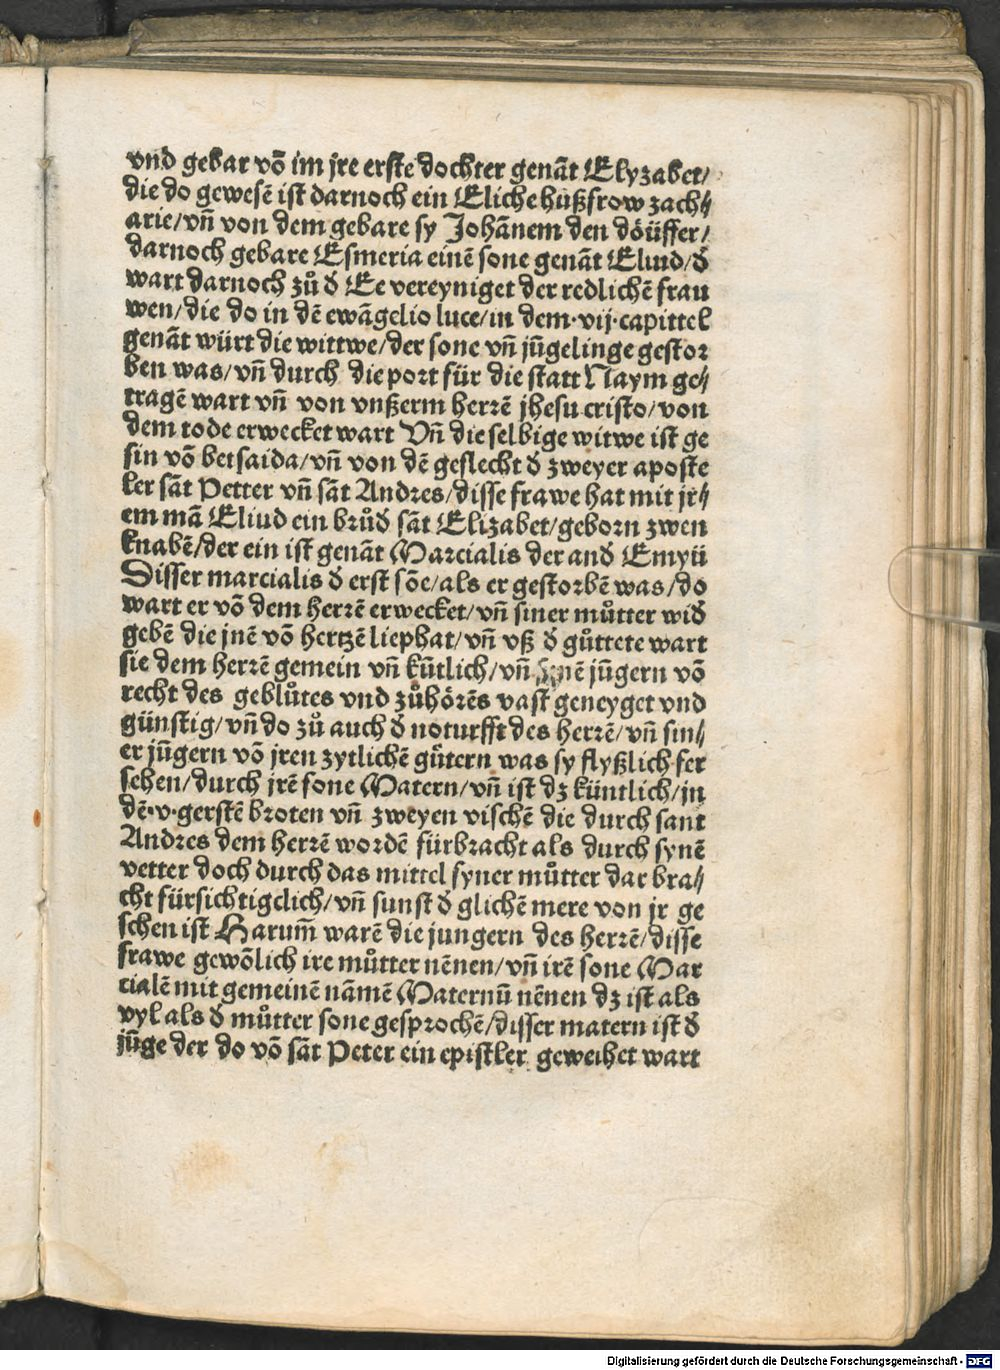 vnd gebar võ im jre erste dochter genãt Elyzabet/
die do gewesẽ ist darnoch ein Eliche hußfrow zach⸗
arie/vñ von dem gebare sy Johãnem den döüffer/
darnoch gebare Esmeria einẽ sone genãt Eliud/ď
wart darnoch zů ď Ee vereyniget der redlichẽ frau
wen/die do in dẽ ewãgelio luce/in dem·vij·capittel
genãt würt die wittwe/der sone vñ jũgelinge gestor
ben was/vñ durch die port für die statt Naym ge⸗
tragẽ wart vñ von vnßerm herrẽ jhesu cristo/von
dem tode erwecket wart Vñ die selbige witwe ist ge
sin võ betsaida/vñ von dẽ geslecht ď zweyer aposte
ler sãt Petter vñ sãt Andres/disse frawe hat mit jr⸗
em mã Eliud ein brůď sãt Elizabet/geborn zwen
knabẽ/der ein ist genãt Marcialis der anď Emyü
Disser marcialis ď erst sõe/als er gestorbẽ was/do
wart er võ dem herrẽ erwecket/vñ siner můtter wiď
gebẽ die jnẽ võ hertzẽ liep hat/vñ vß ď gůttete wart
sie dem herrẽ gemein vñ kũtlich/vñ synẽ jũgern võ
recht des geblůtes vnd zůhörẽs vast geneyget vnd
günstig/vñ do zů auch ď noturfft des herrẽ/vñ sin⸗
er jũgern võ jren zytlichẽ gůtern was sy flyßlich fer
sehen/durch jrẽ sone Matern/vñ ist dz küntlich/in
dẽ·v·gerstẽ broten vñ zweyen vischẽ die durch sant
Andres dem herrẽ wordẽ fürbracht als durch synẽ
vetter doch durch das mittel syner můtter dar bra⸗
cht fürsichtigclich/vñ sunst ď glichẽ mere von jr ge
schen ist Harum̃ warẽ die jungern des herrẽ/disse
frawe gewõlich ire můtter nẽnen/vñ irẽ sone Mar
cialẽ mit gemeinẽ nãmẽ Maternũ nẽnen dz ist als
vyl als ď můtter sone gesprochẽ/disser matern ist ď
jũge der do võ sãt Peter ein epistler geweihet wart
Digitalisierung gefördert durch die Deutsche Forschungsgemeinschaft - DFG